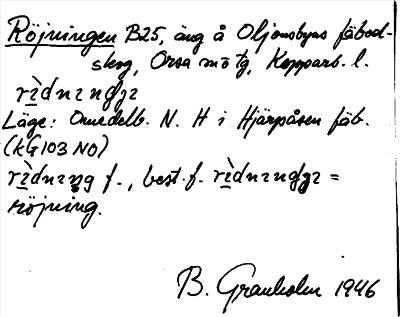 Röjningen B25, äng å Oljonsbyns fäbod-
skog, Orsa sn o tg, Kopparb. l.
Läge: Omedelb. N. H i Hjärpåsen fäb.
(kG103 NO)
f., best. f. =
röjning.
B. Granholm 1946